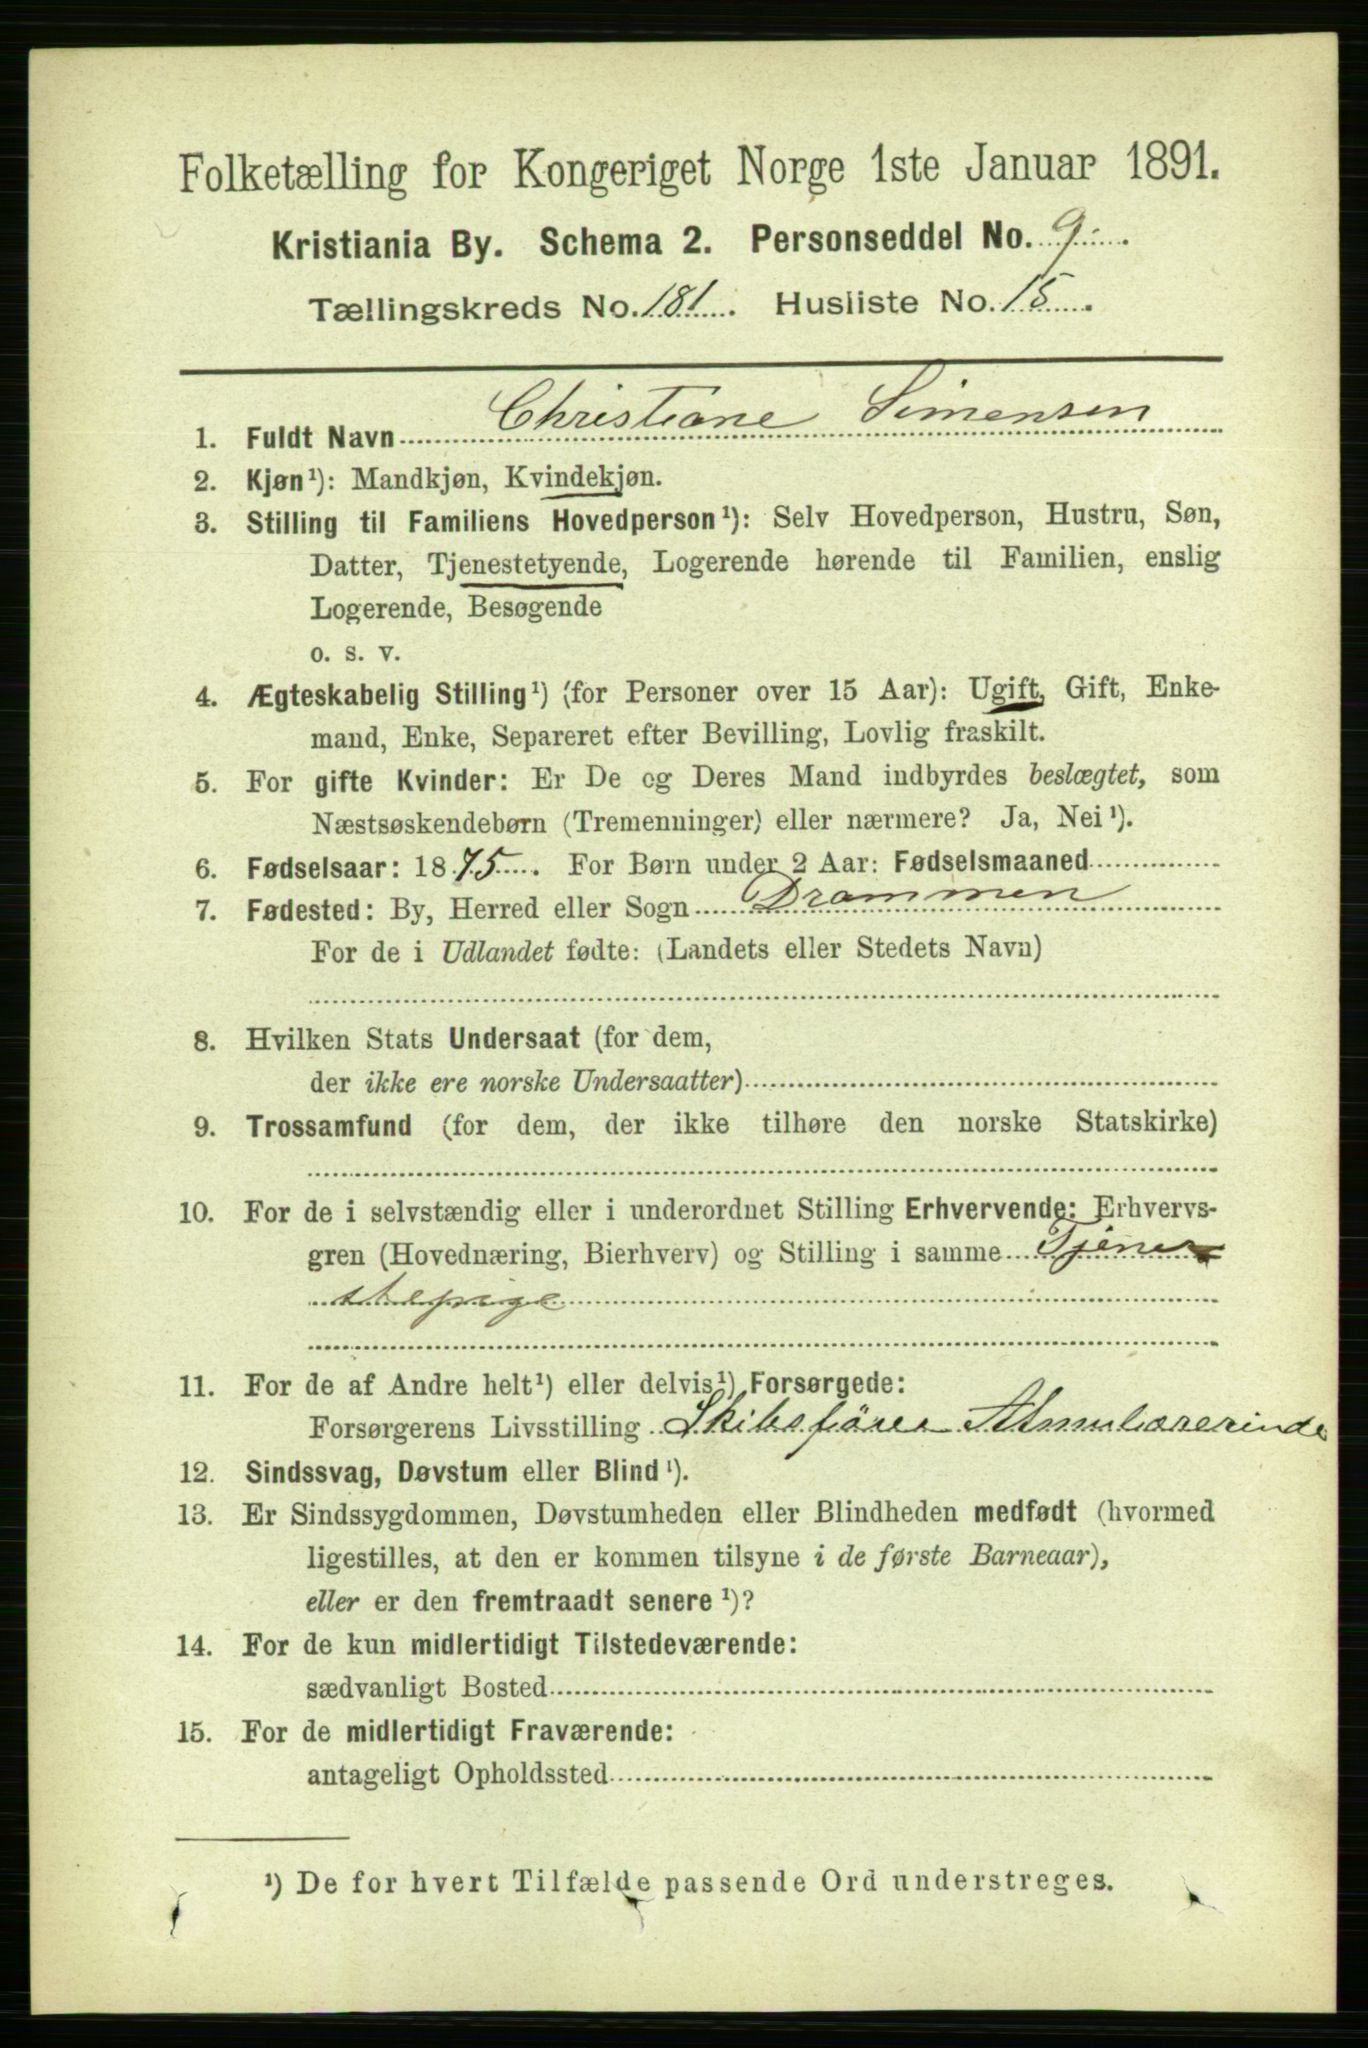 Folketælling for Kongeriget Norge 1ste Januar 1891.
Kristiania By. Schema 2. Personseddel No. 9.
Tællingskreds No. 181. Husliste No. 15.
1. Fuldt Navn Christiane Simensen
2. Kjøn¹): Mandkjøn, Kvindekjøn.
3. Stilling til Familiens Hovedperson¹): Selv Hovedperson, Hustru, Søn,
Datter, Tjenestetyende, Logerende hørende til Familien, enslig
Logerende, Besøgende
o. s. v.
4. Ægteskabelig Stilling¹) (for Personer over 15 Aar): Ugift, Gift, Enke-
mand, Enke, Separeret efter Bevilling, Lovlig fraskilt.
5. For gifte Kvinder: Er De og Deres Mand indbyrdes beslægtet, som
Næstsøskendebørn (Tremenninger) eller nærmere? Ja, Nei¹).
6. Fødselsaar: 1875. For Børn under 2 Aar: Fødselsmaaned
7. Fødested: By, Herred eller Sogn Drammen
For de i Udlandet fødte: (Landets eller Stedets Navn)
8. Hvilken Stats Undersaat (for dem,
der ikke ere norske Undersaatter)
9. Trossamfund (for dem, der ikke tilhøre den norske Statskirke)
10. For de i selvstændig eller i underordnet Stilling Erhvervende: Erhvervs-
gren (Hovednæring, Bierhverv) og Stilling i samme Tjene-
stepige
11. For de af Andre helt¹) eller delvis¹) Forsørgede:
Forsørgerens Livsstilling Skibsfører
12. Sindssvag, Døvstum eller Blind¹).
13. Er Sindssygdommen, Døvstumheden eller Blindheden medfødt (hvormed
ligestilles, at den er kommen tilsyne i de første Barneaar),
eller er den fremtraadt senere¹)?
14. For de kun midlertidigt Tilstedeværende:
sædvanligt Bosted
15. For de midlertidigt Fraværende:
antageligt Opholdssted
¹) De for hvert Tilfælde passende Ord understreges.